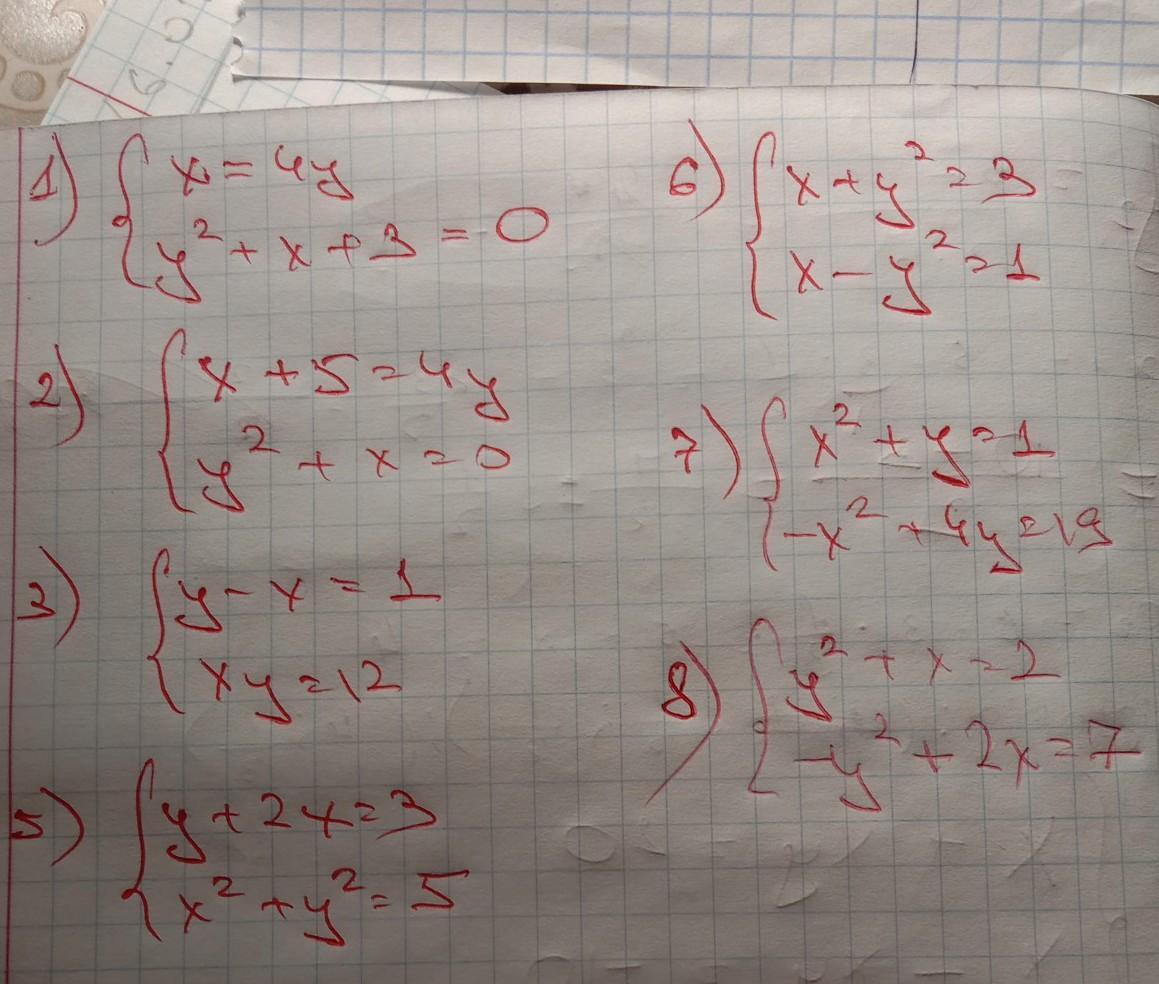 1) { x = 4y
y² + x + 3 = 0
2) { x + 5 = 4y
y² + x = 0
3) { y - x = 1
xy = 12
5) { y + 2x = 3
x² + y² = 5
6) { x + y² = 3
x - y² = 1
7) { x² + y = 1
-x² + 4y = 19
8) { y² + x = 2
-y² + 2x = 7